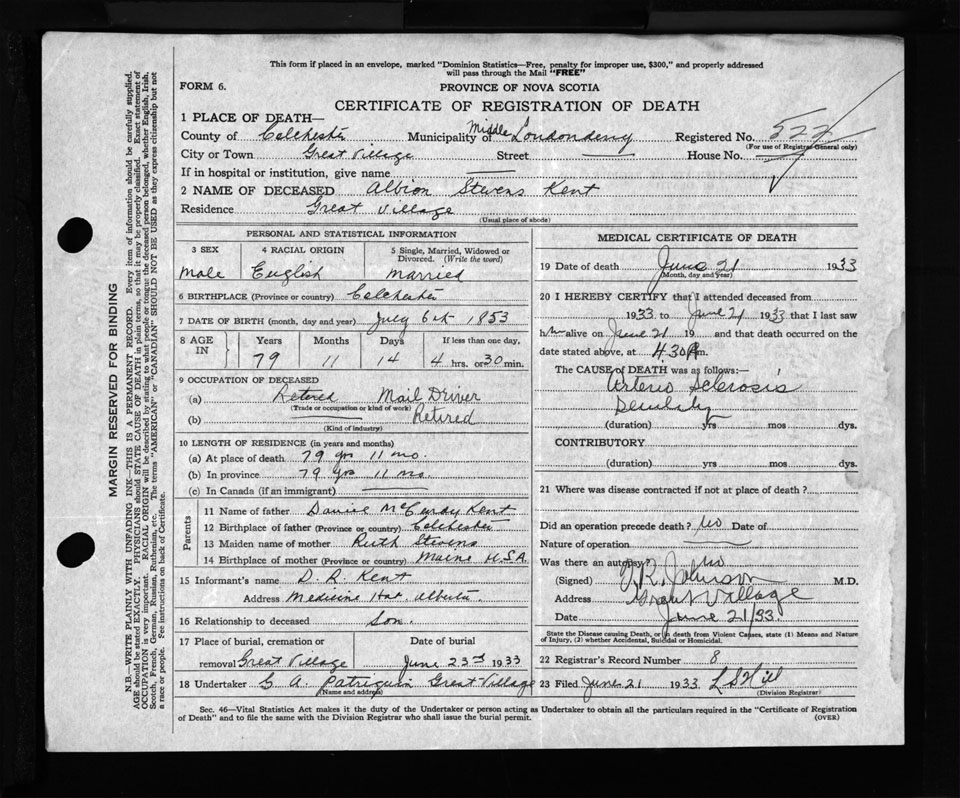 This form if placed in an envelope, marked "Dominion Statistics—Free, penalty for improper use, $300," and properly addressed
will pass through the Mail "FREE"
FORM 6.
PROVINCE OF NOVA SCOTIA
CERTIFICATE OF REGISTRATION OF DEATH
1 PLACE OF DEATH—
County of Colchester Municipality of Middle Londonderry Registered No. 522
(For use of Registrar General only)
City or Town Great Village Street — House No. —
If in hospital or institution, give name —
2 NAME OF DECEASED Albion Stevens Kent
Residence Great Village
(Usual place of abode)
PERSONAL AND STATISTICAL INFORMATION
3 SEX 4 RACIAL ORIGIN 5 Single, Married, Widowed or Divorced. (Write the word)
Male English Married
6 BIRTHPLACE (Province or country) Colchester
7 DATE OF BIRTH (month, day and year) July 6th 1853
8 AGE IN Years Months Days If less than one day,
79 11 14 4 hrs. or 30 min.
9 OCCUPATION OF DECEASED
(a) Retered Mail Driver
(Trade or occupation or kind of work)
(b) — Retired
(Kind of industry)
10 LENGTH OF RESIDENCE (in years and months)
(a) At place of death 79 yrs 11 mo.
(b) In province 79 yrs 11 mo
(c) In Canada (if an immigrant) —
Parents
11 Name of father Daniel McCurdy Kent
12 Birthplace of father (Province or country) Colchester
13 Maiden name of mother Ruth Stevens
14 Birthplace of mother (Province or country) Maine U.S.A.
15 Informant's name D. R. Kent
Address Medicine Hat. Alberta.
16 Relationship to deceased Son.
17 Place of burial, cremation or removal Great Village Date of burial June 23rd 1933
18 Undertaker G. A. Patriquin Great Village
(Name and address)
MEDICAL CERTIFICATE OF DEATH
19 Date of death June 21 1933
(Month, day and year)
20 I HEREBY CERTIFY that I attended deceased from
1933 to June 21 1933 that I last saw
him alive on June 21 19 and that death occurred on the
date stated above, at 4.30 P.m.
The CAUSE OF DEATH was as follows:—
Arterio Sclerosis
Senility
(duration) yrs mos dys.
CONTRIBUTORY
(duration) yrs mos dys.
21 Where was disease contracted if not at place of death?
Did an operation precede death? No Date of
Nature of operation —
Was there an autopsy? No
(Signed) Johnson M.D.
Address Great Village
Date June 21/33.
State the Disease causing Death, or in death from Violent Causes, state (1) Means and Nature
of Injury, (2) whether Accidental, Suicidal or Homicidal.
22 Registrar's Record Number 8
23 Filed June 21 1933 L S Hill
(Division Registrar)
Sec. 46—Vital Statistics Act makes it the duty of the Undertaker or person acting as Undertaker to obtain all the particulars required in the "Certificate of Registration
of Death" and to file the same with the Division Registrar who shall issue the burial permit.
(OVER)
MARGIN RESERVED FOR BINDING
N.B.—WRITE PLAINLY WITH UNFADING INK—THIS IS A PERMANENT RECORD. Every item of information should be carefully supplied.
AGE should be stated EXACTLY. PHYSICIANS should STATE CAUSE OF DEATH in plain terms, so that it may be properly classified. Exact statement of
OCCUPATION is very important. RACIAL ORIGIN will be described by stating to what people or tongue the deceased person belonged, whether English, Irish,
Scotch, French, German, Russian, Ruthenian, etc. The terms "AMERICAN" or "CANADIAN" SHOULD NOT BE USED as they express citizenship but not
a race or people. Fee instructions on back of Certificate.